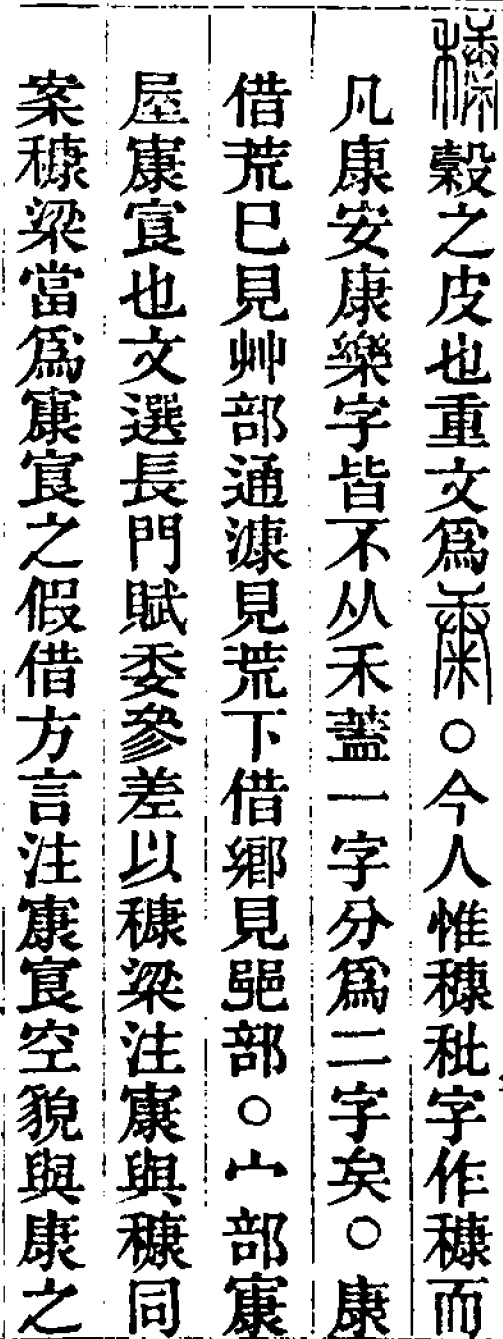 穅穀之皮也重文爲康○今人惟穅秕字作穅而
凡康安康樂字皆不从禾蓋一字分爲二字矣○康
借荒巳見艸部通漮見荒下借鄉見𨛜部○宀部㝩
屋㝩㝗也文選長門賦委參差以穅梁注㝩與穅同
案穅梁當爲㝩㝗之假借方言注㝩㝗空貌與康之